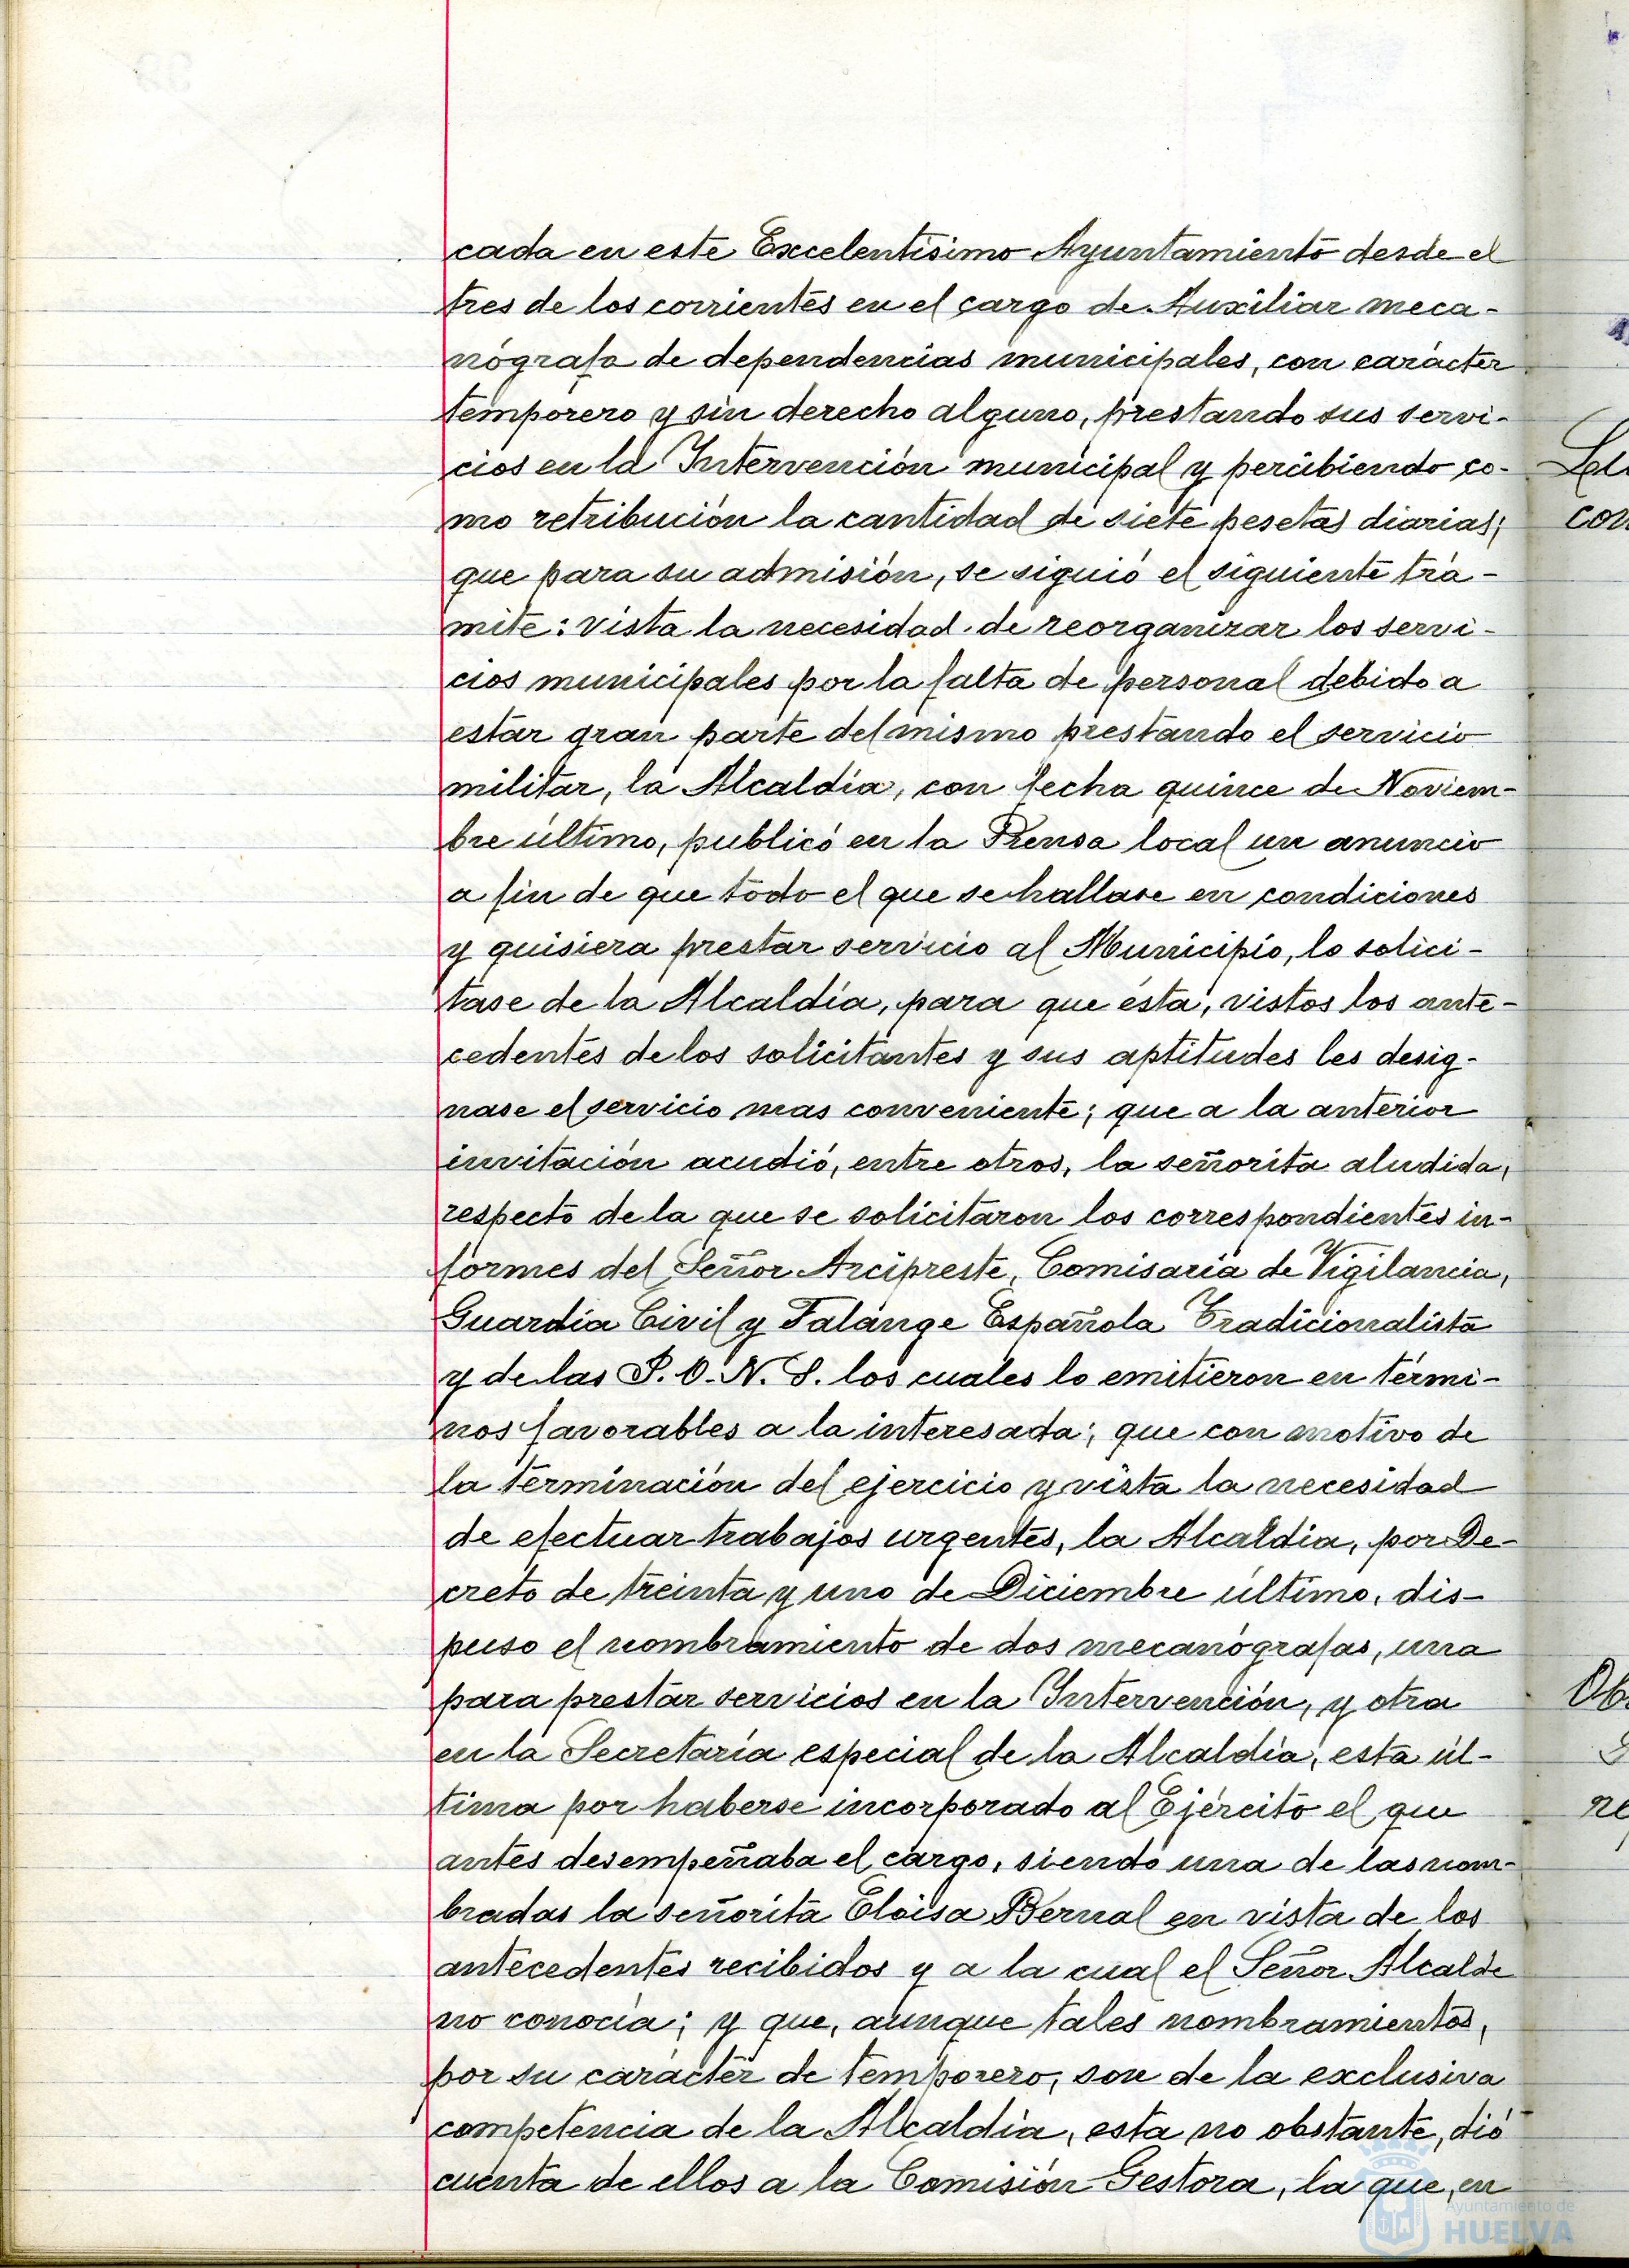 cada en este Excelentísimo Ayuntamiento desde el
tres de los corrientes en el cargo de Auxiliar meca-
nógrafa de dependencias municipales, con carácter
temporero y sin derecho alguno, prestando sus servi-
cios en la Intervención municipal y percibiendo co-
mo retribución la cantidad de siete pesetas diarias;
que para su admisión, se siguió el siguiente trá-
mite: vista la necesidad de reorganizar los servi-
cios municipales por la falta de personal debido a
estar gran parte del mismo prestando el servicio
militar, la Alcaldía, con fecha quince de Noviem-
bre último, publicó en la Prensa local un anuncio
a fin de que todo el que se hallase en condiciones
y quisiera prestar servicio al Municipio, lo solici-
tase de la Alcaldía, para que ésta, vistos los ante-
cedentes de los solicitantes y sus aptitudes les desig-
nase el servicio mas conveniente; que a la anterior
invitación acudió, entre otros, la señorita aludida,
respecto de la que se solicitaron los correspondientes in-
formes del Señor Arcipreste, Comisaría de Vigilancia,
Guardia Civil y Falange Española Tradicionalista
y de las J. O. N. S. los cuales lo emitieron en térmi-
nos favorables a la interesada; que con motivo de
la terminación del ejercicio y vista la necesidad
de efectuar trabajos urgentes, la Alcaldía, por De-
creto de treinta y uno de Diciembre último, dis-
puso el nombramiento de dos mecanógrafas, una
para prestar servicios en la Intervención, y otra
en la Secretaría especial de la Alcaldía, esta úl-
tima por haberse incorporado al Ejército el que
antes desempeñaba el cargo, siendo una de las nom-
bradas la señorita Eloisa Bernal en vista de los
antecedentes recibidos y a la cual el Señor Alcalde
no conocía; y que, aunque tales nombramientos,
por su carácter de temporero, son de la exclusiva
competencia de la Alcaldía, esta no obstante, dió
cuenta de ellos a la Comisión Gestora, la que, en
Ayuntamiento de
HUELVA